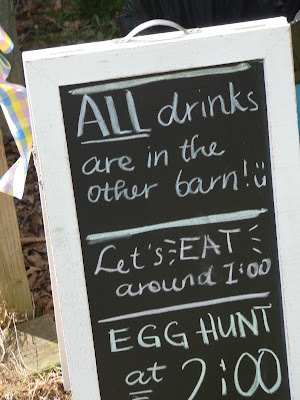 ALL drinks
are in the
other barn! ü
Let's EAT
around 1:00
EGG HUNT
at 2:00